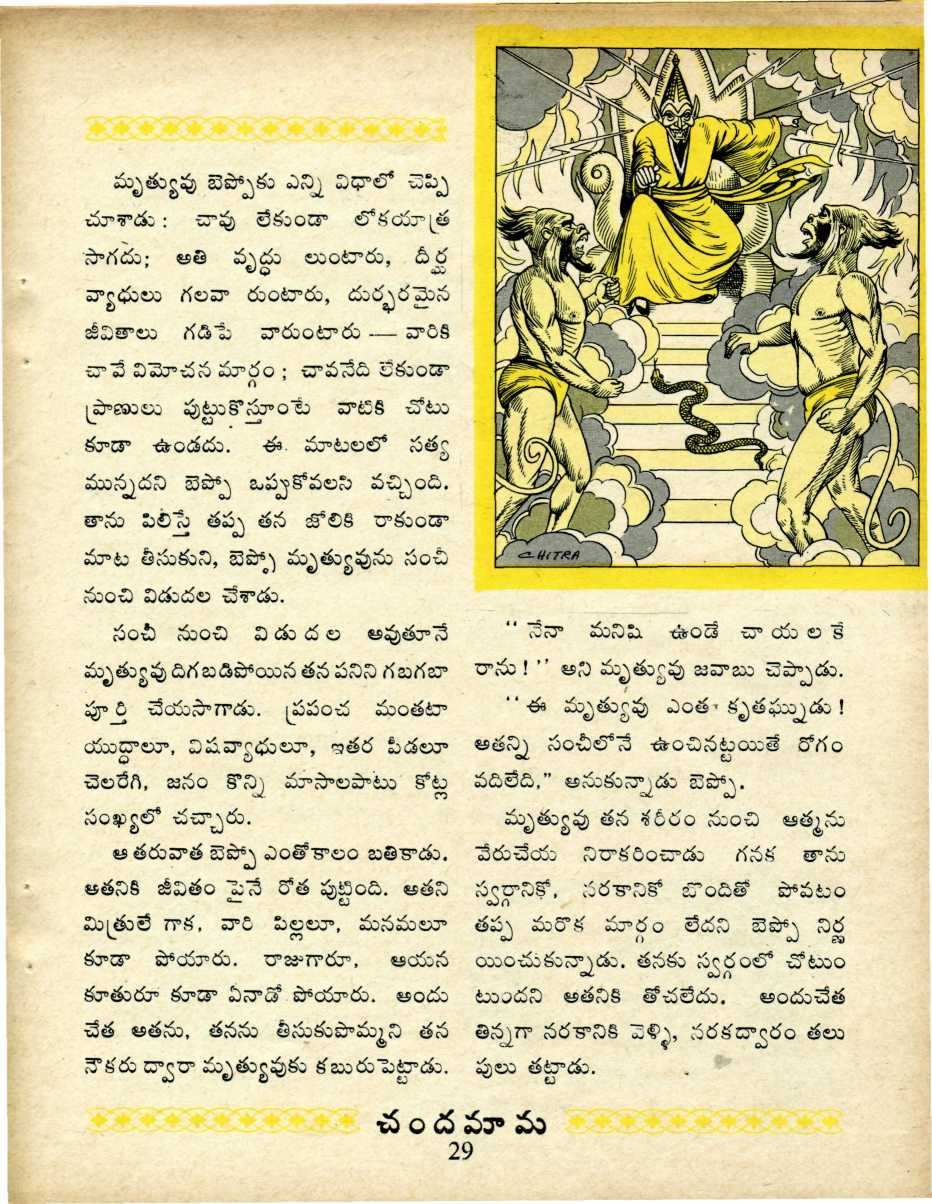 మృత్యువు బెప్పోకు ఎన్ని విధాలో చెప్పి
చూశాడు : చావు లేకుండా లోకయాత్ర
సాగదు; అతి వృద్ధు లుంటారు, దీర్ఘ
వ్యాధులు గలవా రుంటారు, దుర్భరమైన
జీవితాలు గడిపే వారుంటారు — వారికి
చావే విమోచన మార్గం ; చావనేది లేకుండా
ప్రాణులు పుట్టుకొస్తూంటే వాటికి చోటు
కూడా ఉండదు. ఈ మాటలలో సత్య
మున్నదని బెప్పో ఒప్పుకోవలసి వచ్చింది.
తాను పిలిస్తే తప్ప తన జోలికి రాకుండా
మాట తీసుకుని, బెప్పో మృత్యువును సంచీ
నుంచి విడుదల చేశాడు.
సంచీ నుంచి విడుదల అవుతూనే
మృత్యువు దిగబడిపోయిన తన పనిని గబగబా
పూర్తి చేయసాగాడు. ప్రపంచ మంతటా
యుద్ధాలూ, విషవ్యాధులూ, ఇతర పీడలూ
చెలరేగి, జనం కొన్ని మాసాలపాటు కోట్ల
సంఖ్యలో చచ్చారు.
ఆ తరువాత బెప్పో ఎంతోకాలం బతికాడు.
అతనికి జీవితం పైనే రోత పుట్టింది. అతని
మిత్రులే గాక, వారి పిల్లలూ, మనమలూ
కూడా పోయారు. రాజుగారూ, ఆయన
కూతురూ కూడా ఏనాడో పోయారు. అందు
చేత అతను, తనను తీసుకుపొమ్మని తన
నౌకరు ద్వారా మృత్యువుకు కబురుపెట్టాడు.
CHITRA
“ నేనా మనిషి ఉండే చాయలకే
రాను ! ” అని మృత్యువు జవాబు చెప్పాడు.
“ ఈ మృత్యువు ఎంత కృతఘ్నుడు !
అతన్ని సంచీలోనే ఉంచినట్టయితే రోగం
వదిలేది,” అనుకున్నాడు బెప్పో.
మృత్యువు తన శరీరం నుంచి ఆత్మను
వేరుచేయ నిరాకరించాడు గనక తాను
స్వర్గానికో, నరకానికో బొందితో పోవటం
తప్ప మరొక మార్గం లేదని బెప్పో నిర్ణ
యించుకున్నాడు. తనకు స్వర్గంలో చోటుం
టుందని అతనికి తోచలేదు. అందుచేత
తిన్నగా నరకానికి వెళ్ళి, నరకద్వారం తలు
పులు తట్టాడు.
చందమామ
29